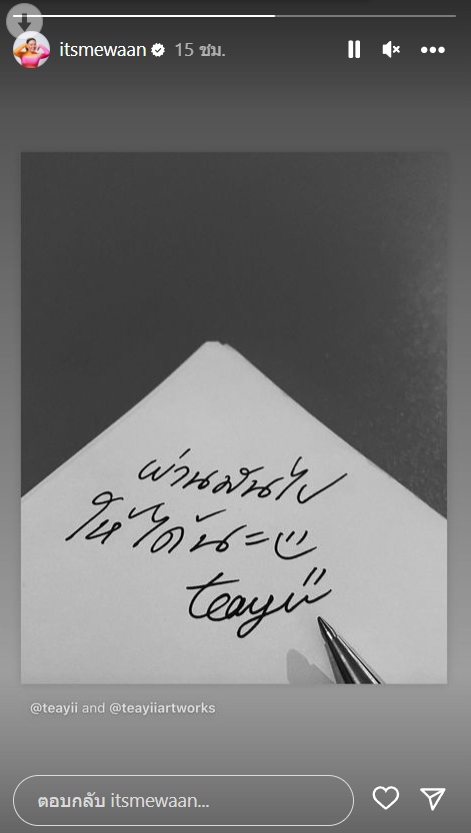 itsmewaan 15 ชม.
ผ่านมันไป
ให้ได้นะ=
teayii
@teayii and @teayiiartworks
ตอบกลับ itsmewaan...